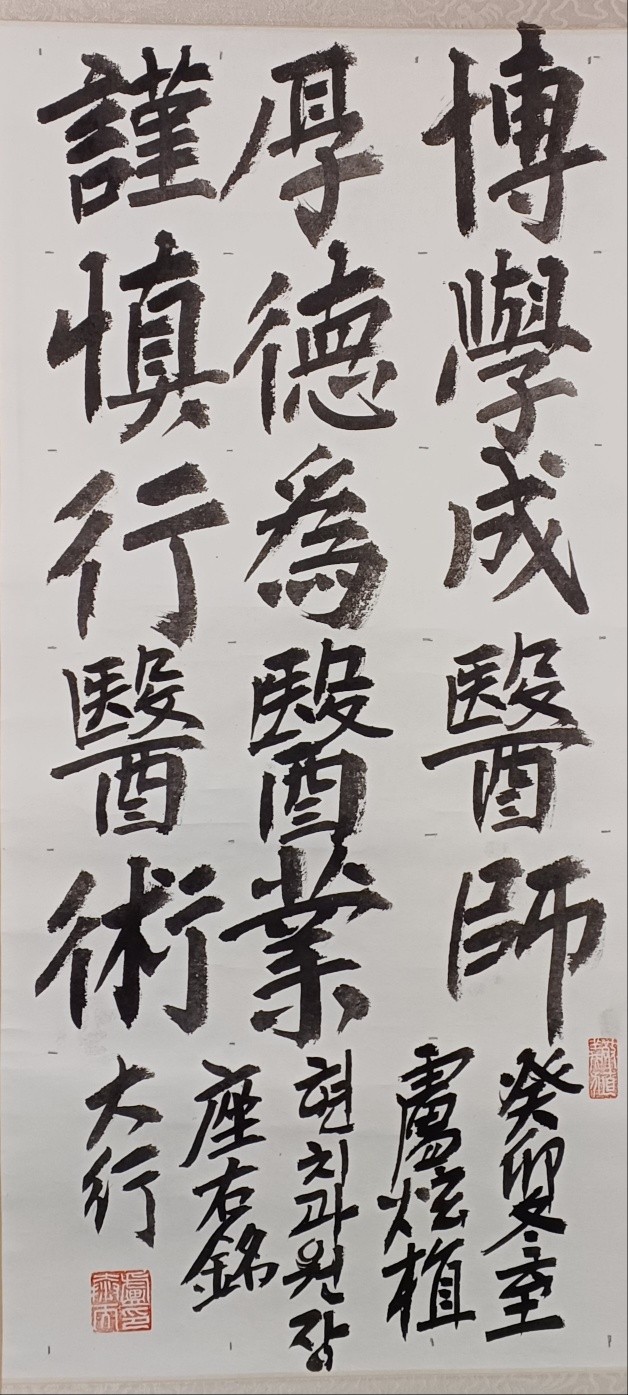 博學成醫師
厚德為醫業
謹慎行醫術
癸卯冬至
盧炫植
현치과원장
座右銘
大行